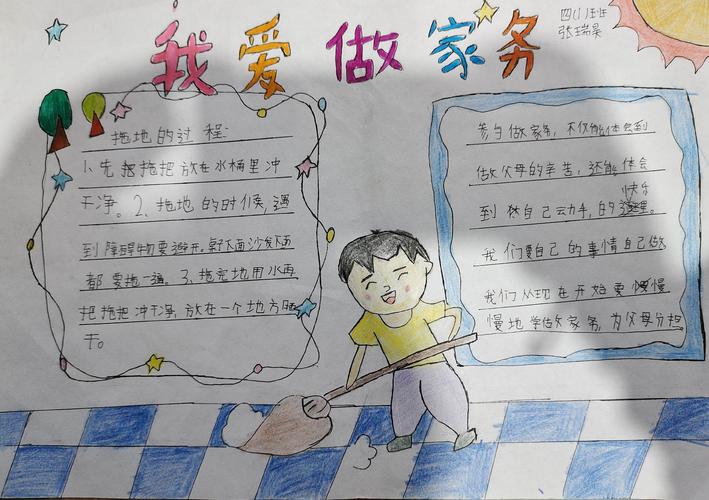 我爱做家务
四(1)班
张瑞昊
拖地的过程:
1、先把拖把放在水桶里冲
干净。2、拖地的时候,遇
到障碍物要避开。桌下面沙发下面
都要拖一遍。3、拖完地用水再
把拖把冲干净,放在一个地方晒
干。
参与做家务,不仅能体会到
做父母的辛苦,还能体会
快乐
到独自己云力手,的。
我们要自己的事情自己做
我们从现在开始要慢
慢地学做家务,为父母分担